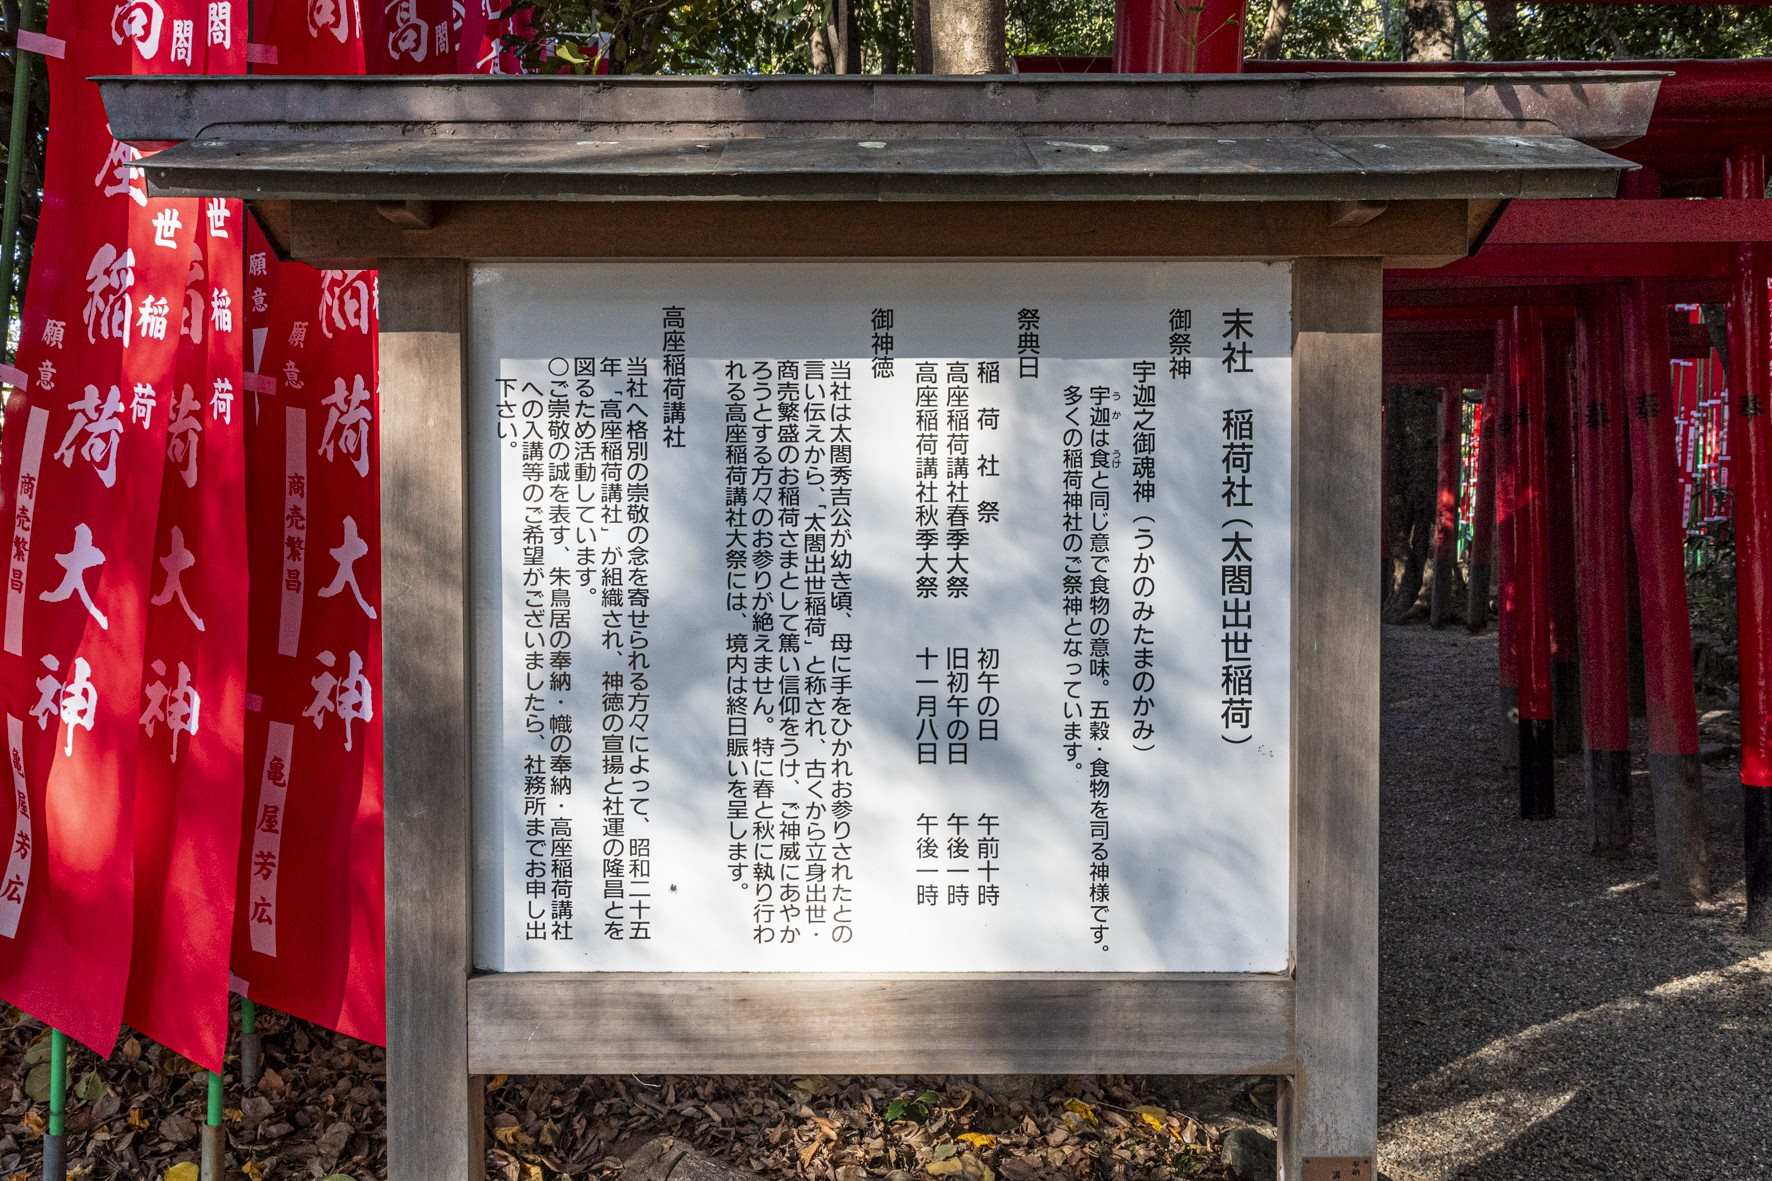 末社　稲荷社（太閤出世稲荷）
御祭神
宇迦之御魂神（うかのみたまのかみ）
宇迦は食と同じ意で食物の意味。五穀・食物を司る神様です。
うか　うけ
多くの稲荷神社のご祭神となっています。
祭典日
稲荷社祭　初午の日　午前十時
高座稲荷講社春季大祭　旧初午の日　午後一時
高座稲荷講社秋季大祭　十一月八日　午後一時
御神徳
当社は太閤秀吉公が幼き頃、母に手をひかれお参りされたとの
言い伝えから、「太閤出世稲荷」と称され、古くから立身出世・
商売繁盛のお稲荷さまとして篤い信仰をうけ、ご神威にあやか
ろうとする方々のお参りが絶えません。特に春と秋に執り行わ
れる高座稲荷講社大祭には、境内は終日賑いを呈します。
高座稲荷講社
当社へ格別の崇敬の念を寄せられる方々によって、昭和二十五
年「高座稲荷講社」が組織され、神徳の宣揚と社運の隆昌とを
図るため活動しています。
〇ご崇敬の誠を表す、朱鳥居の奉納・幟の奉納・高座稲荷講社
への入講等のご希望がございましたら、社務所までお申し出
下さい。
稲荷大神
願意
商売繁昌
亀屋芳広
高座稲荷大神
願意
商売繁昌
亀屋芳広
閤
世稲荷
閤
世稲荷
奉
奉
奉
奉納